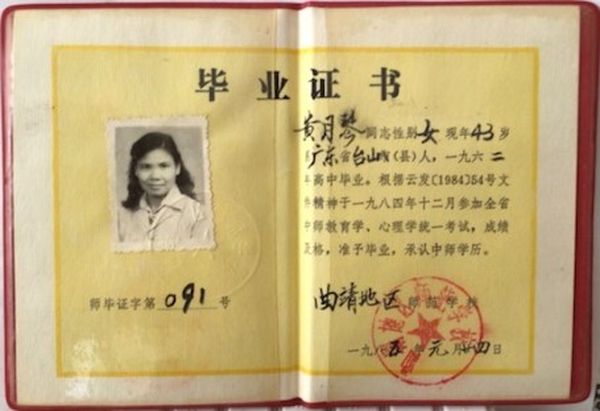 毕业证书
黄月琴同志性别女 现年43岁
广东省台山(县)人，一九六二
年高中毕业。根据云发[1984]54号文
件精神于一九八四年十二月参加全省
中师教育学、心理学统一考试，成绩
及格，准予毕业，承认中师学历。
师毕证字第091号
曲靖地区师范学校
一九八五年元月十四日